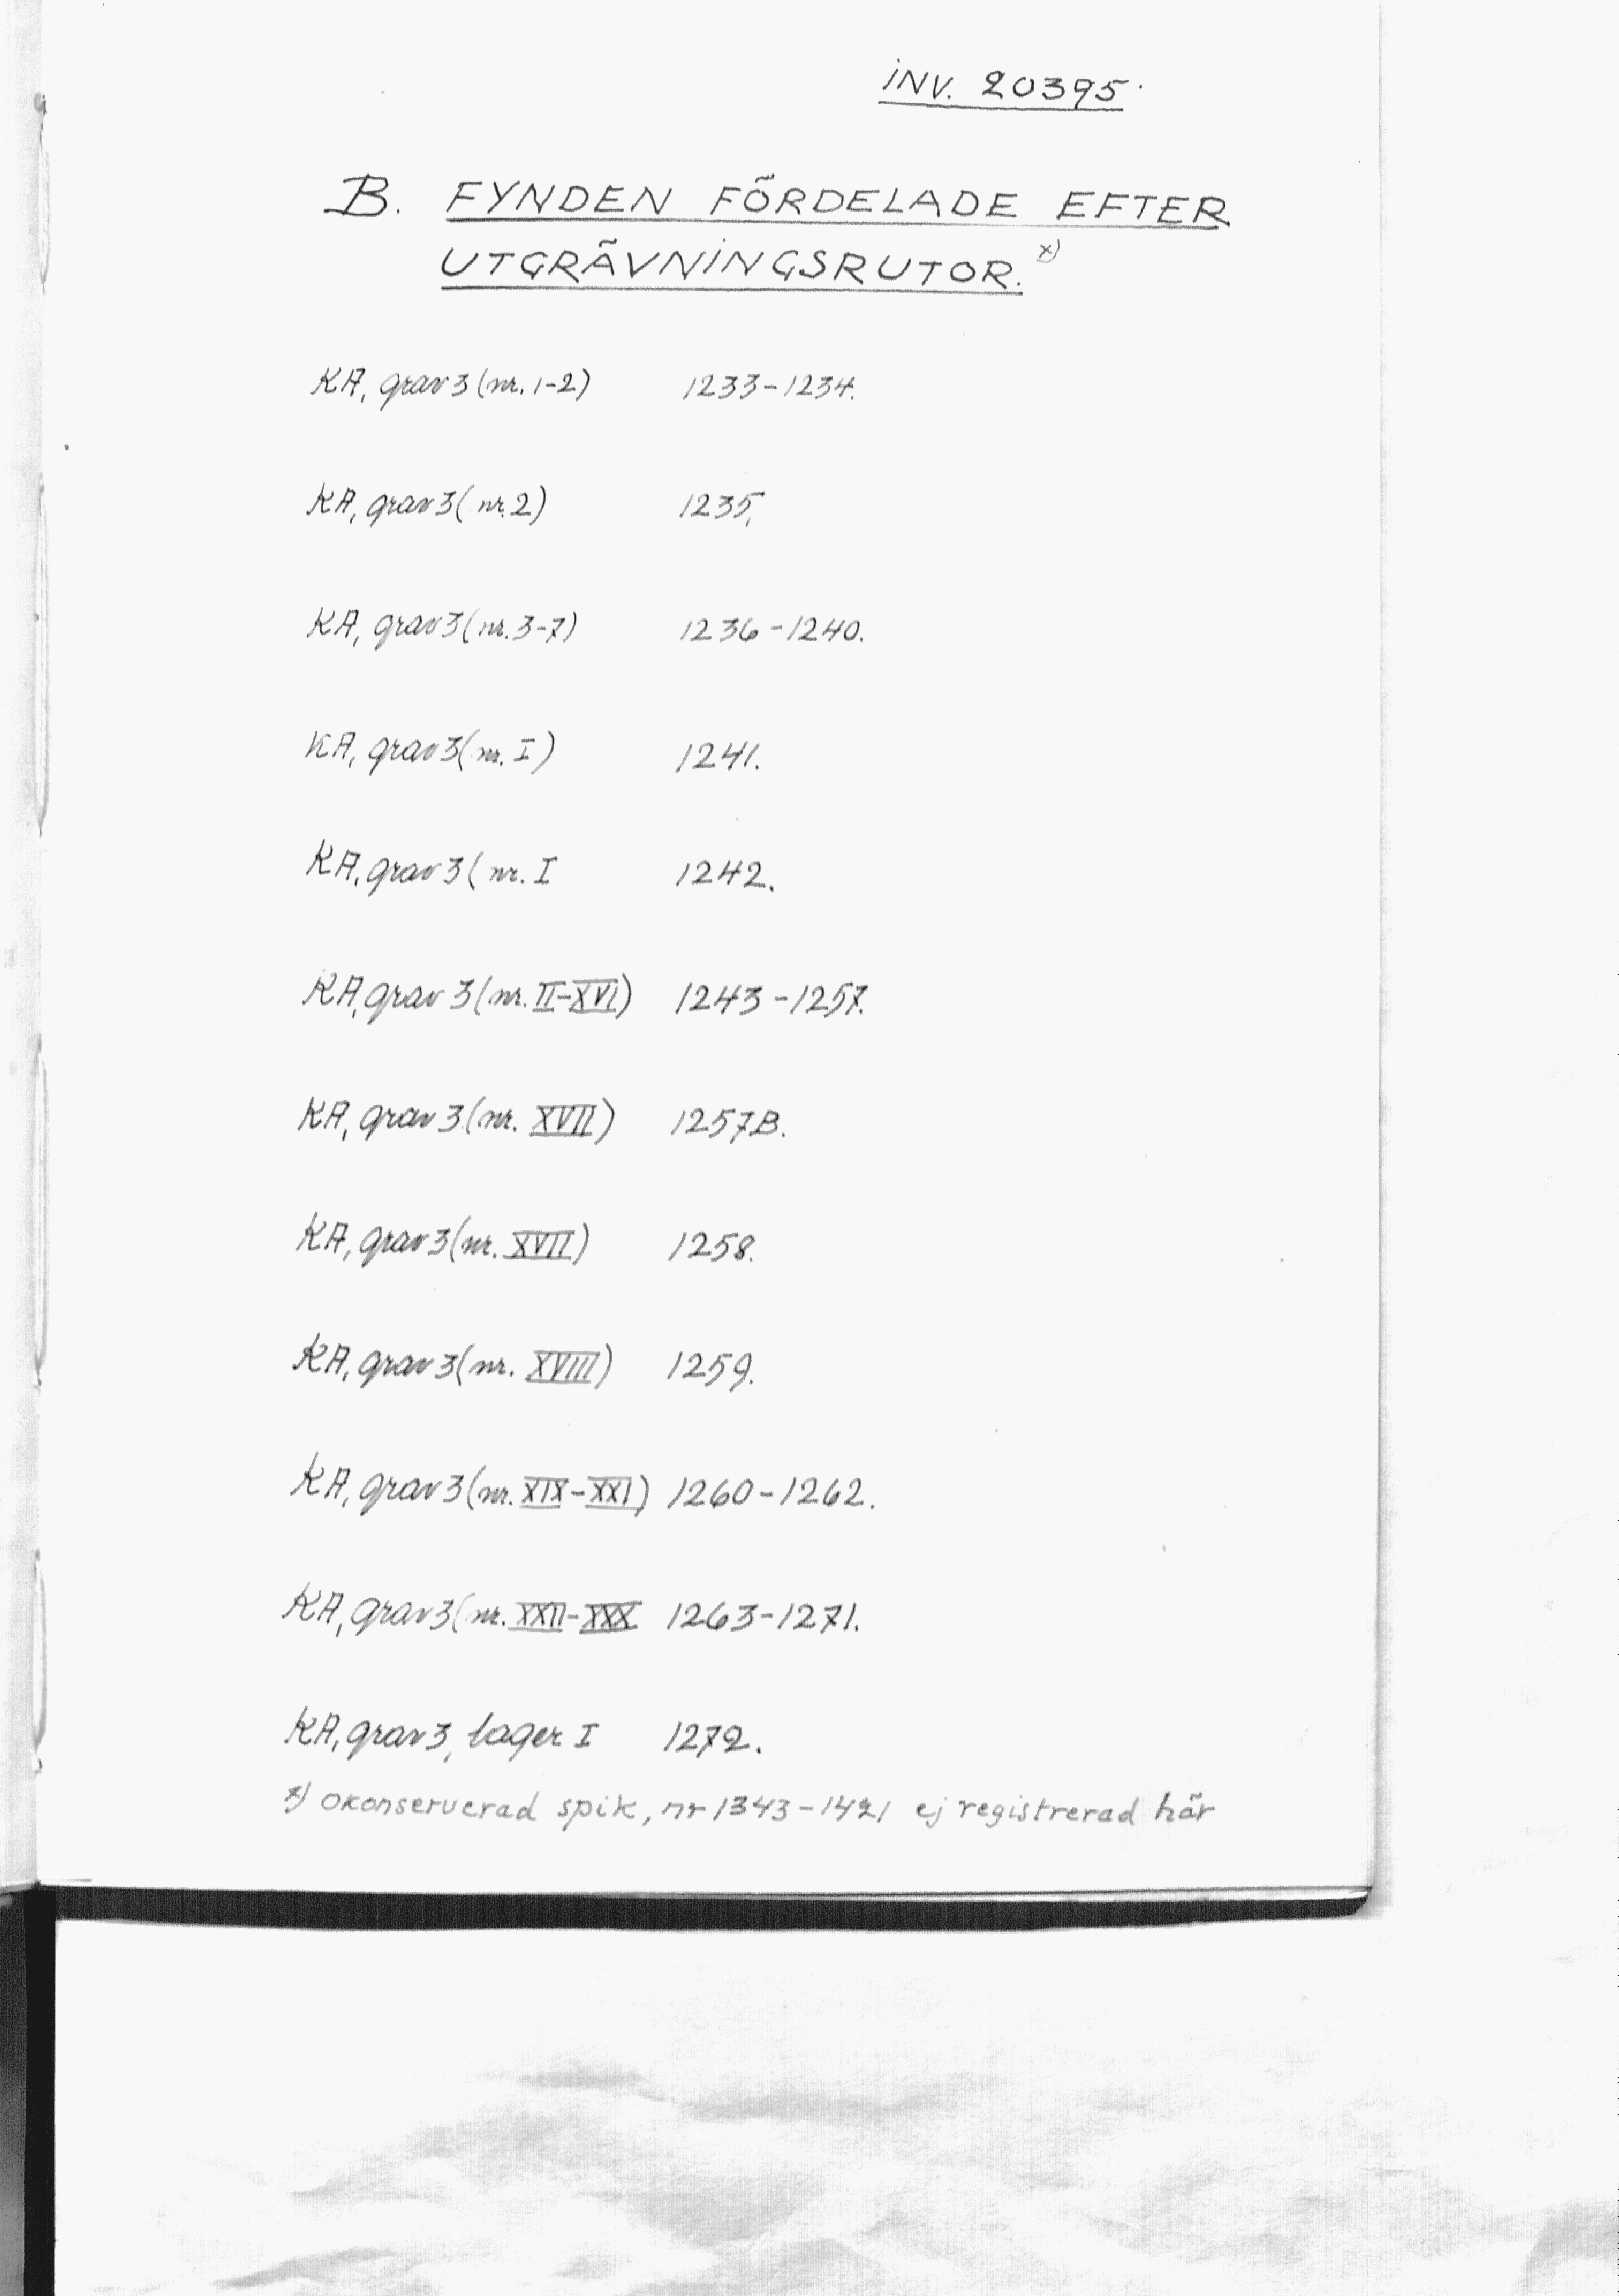 INV. 20395.
B. FYNDEN FÖRDELADE EFTER
UTGRÄVNINGSRUTOR. x)
KA, grav 3 (nr. 1-2) 1233-1234.
KA, grav 3 (nr. 2) 1235.
KA, grav 3 (nr. 3-7) 1236-1240.
KA, grav 3 (nr. I) 1241.
KA, grav 3 (nr. I 1242.
KA, grav 3 (nr. II-XVI) 1243-1257.
KA, grav 3 (nr. XVII) 1257B.
KA, grav 3 (nr. XVII) 1258.
KA, grav 3 (nr. XVIII) 1259.
KA, grav 3 (nr. XIX-XXI) 1260-1262.
KA, grav 3 (nr. XXII-XXX 1263-1271.
KA, grav 3, lager I 1272.
x) okonserverad spik, nr 1343-1421 ej registrerad här